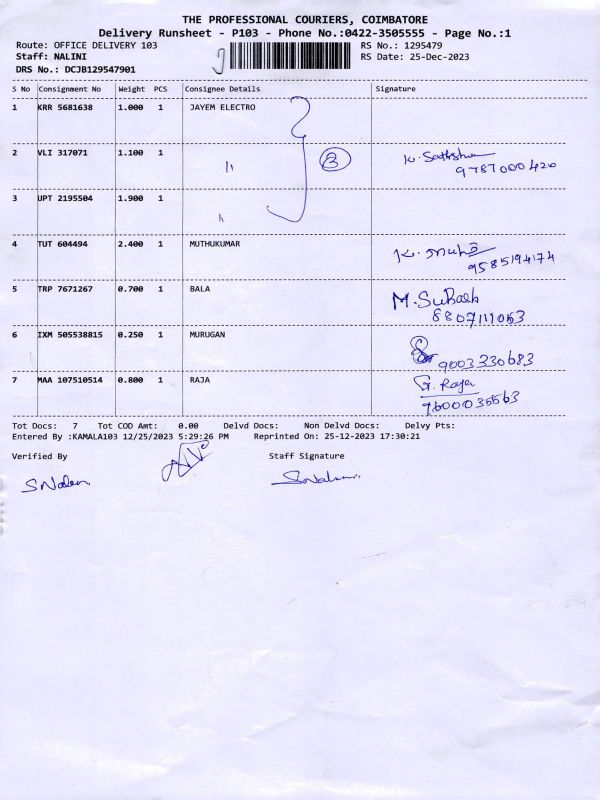 THE PROFESSIONAL COURIERS, COIMBATORE
Delivery Runsheet - P103 - Phone No.:0422-3505555 - Page No.:1
Route: OFFICE DELIVERY 103 RS No.: 1295479
Staff: NALINI RS Date: 25-Dec-2023
DRS No.: DCJB129547901
S No Consignment No Weight PCS Consignee Details Signature
1 KRR 5681638 1.000 1 JAYEM ELECTRO
2 VLI 317071 1.100 1 " 3 K. Sathshw
9787000420
3 UPT 2195504 1.900 1 "
4 TUT 604494 2.400 1 MUTHUKUMAR
9585194174
5 TRP 7671267 0.700 1 BALA M. Subash
8807111063
6 IXM 505538815 0.250 1 MURUGAN
9003330683
7 MAA 107510514 0.800 1 RAJA G. Raja
7600035563
Tot Docs: 7 Tot COD Amt: 0.00 Delvd Docs: Non Delvd Docs: Delvy Pts:
Entered By :KAMALA103 12/25/2023 5:29:26 PM Reprinted On: 25-12-2023 17:30:21
Verified By Staff Signature